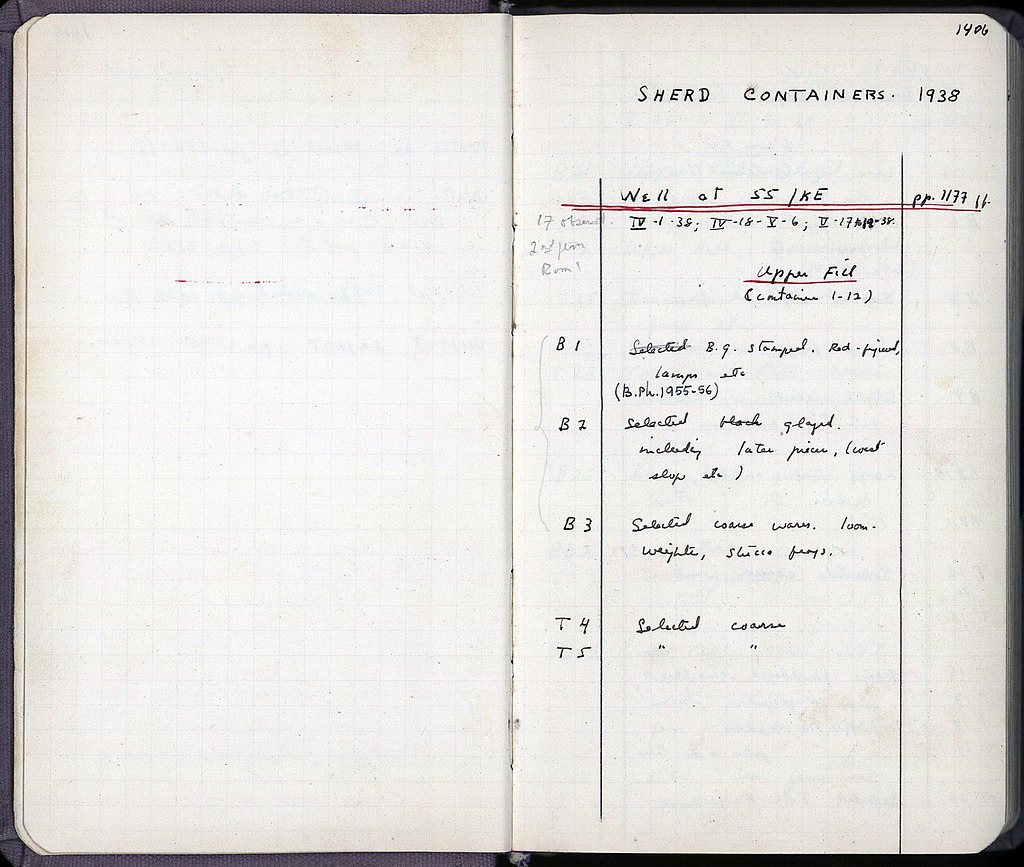 1406
SHERD CONTAINERS. 1938
Well at SS/KE pp. 1177 ff.
IV-1-38; IV-18-V-6; V-17
2nd from
Upper Fill
(Container 1-12)
B 1 Selected B.g. stamped. Red-figured,
lamps etc
(B.Ph. 1955-56)
B 2 Selected black glazed.
including later pieces, (west
slope etc)
B 3 Selected coarse wares. loom-
weights, stucco frags.
T 4 Selected coarse
T 5 " "